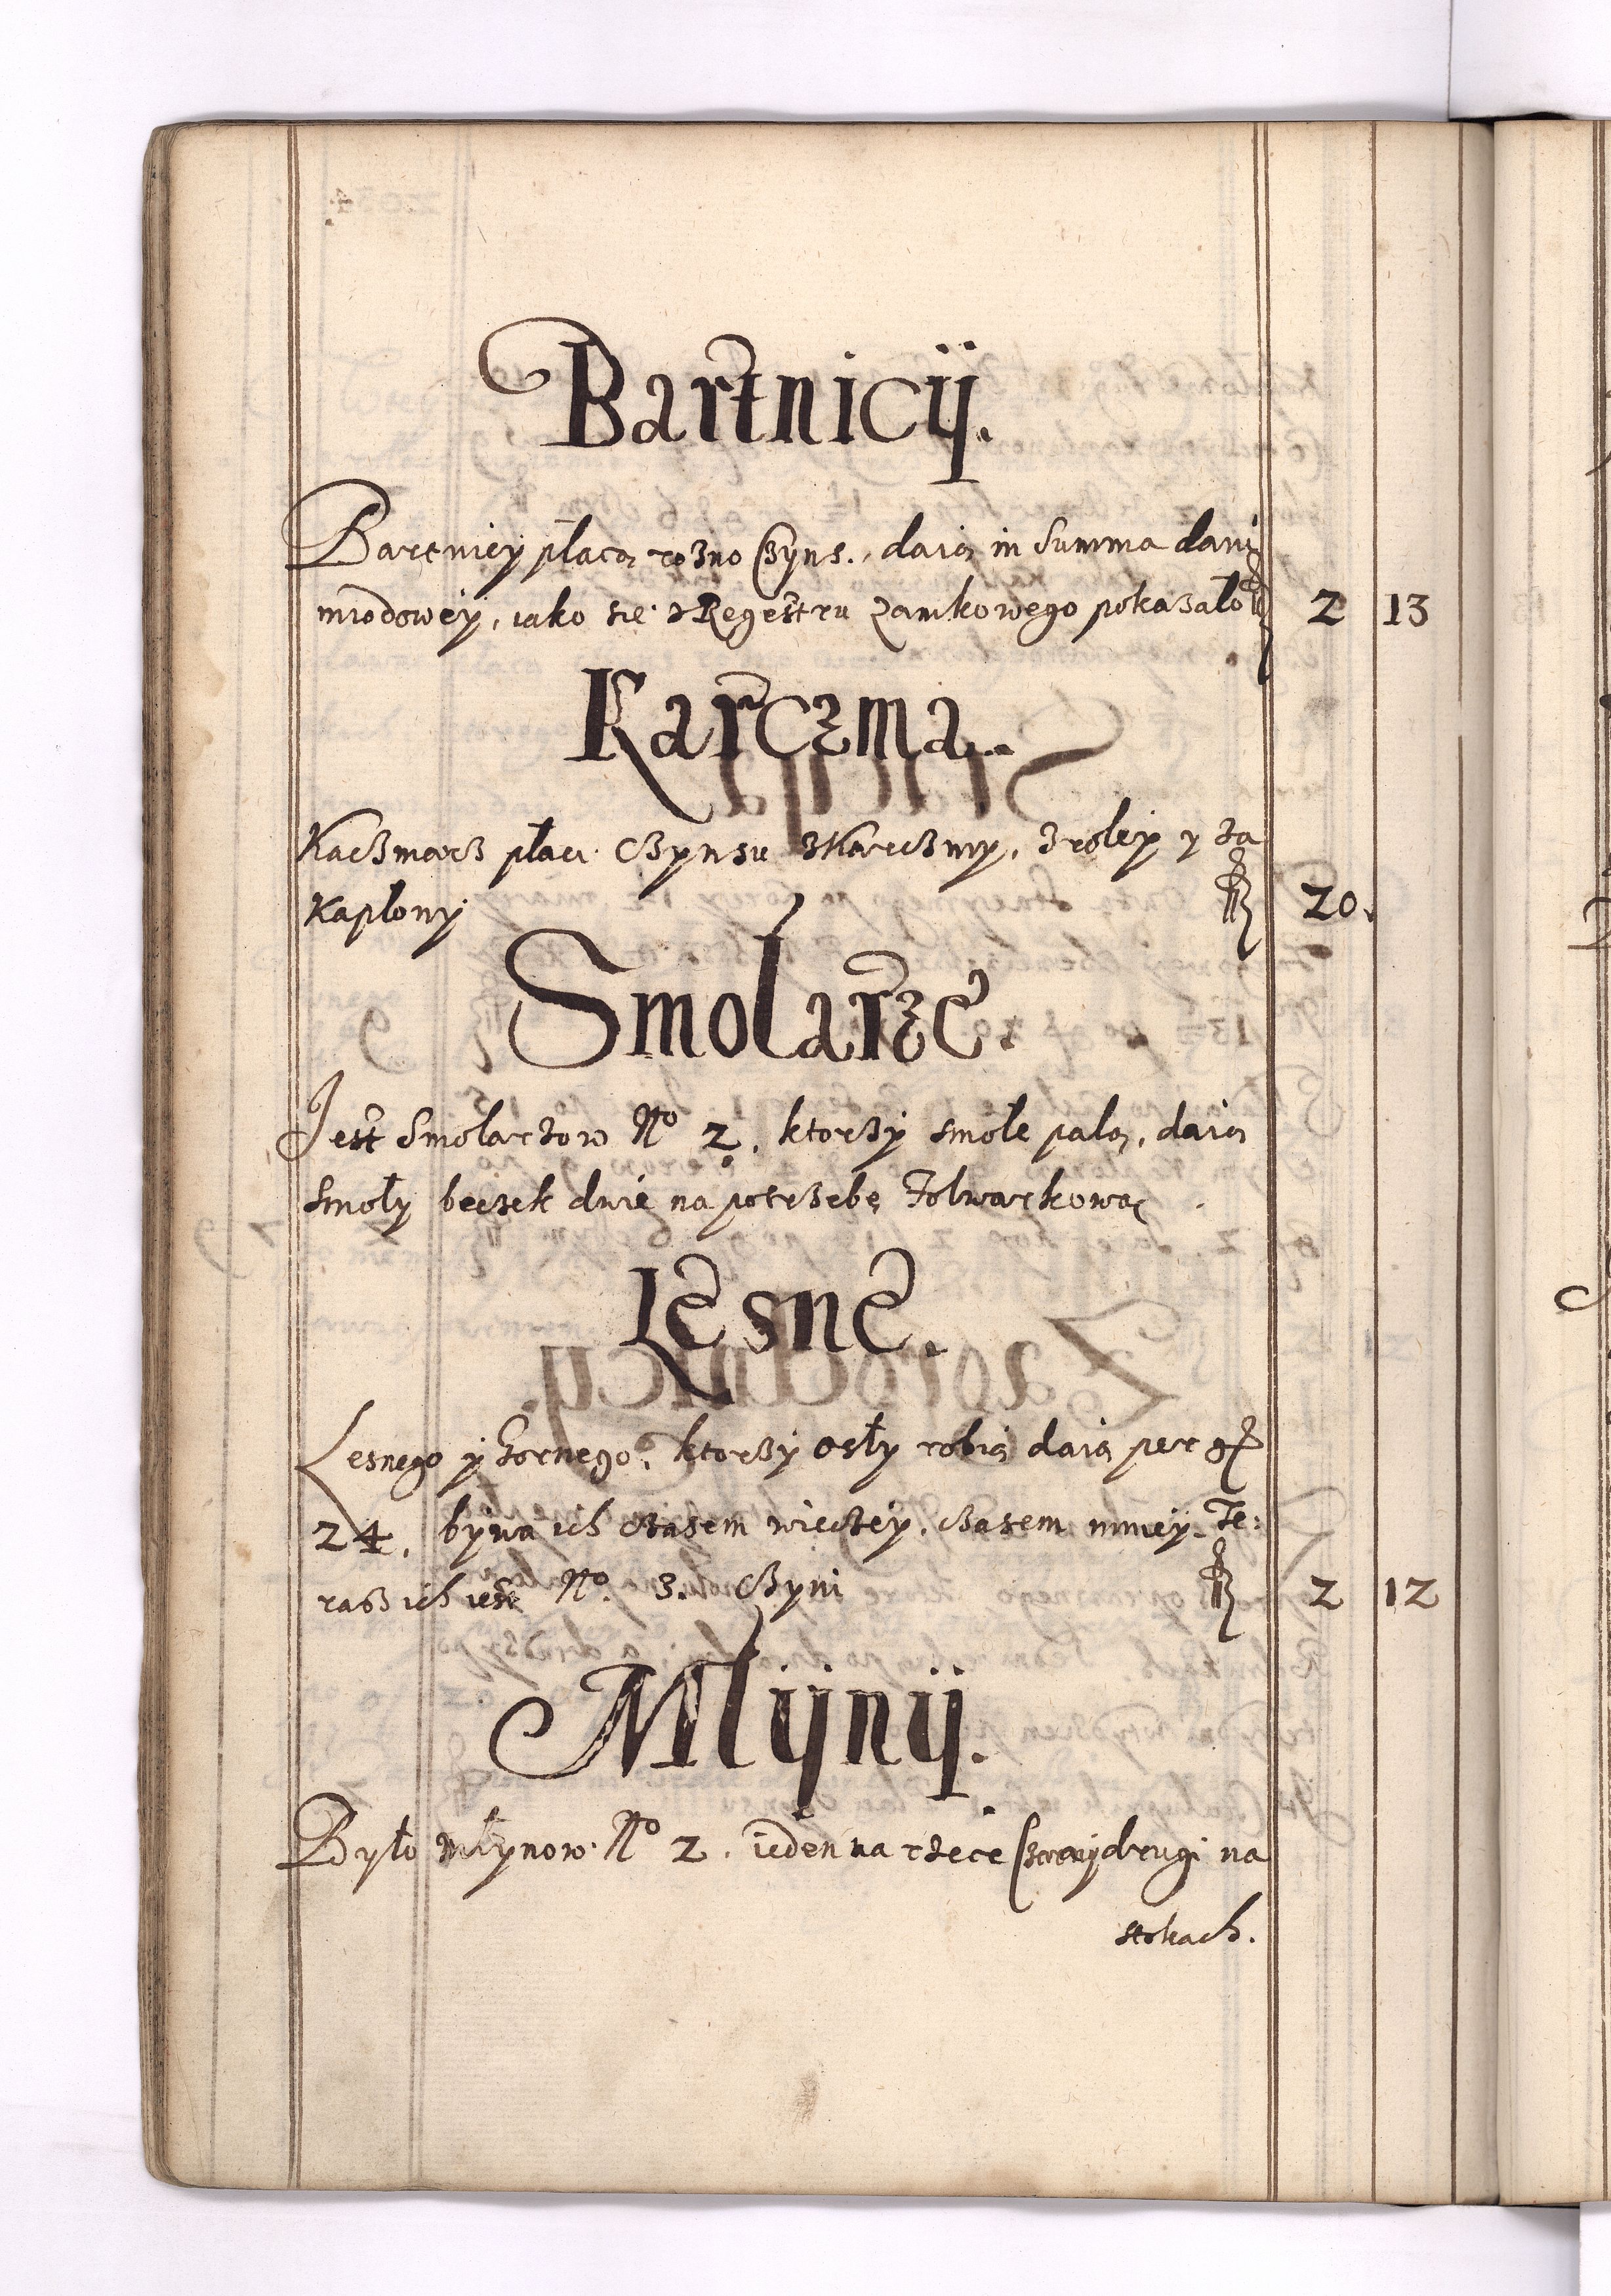 Bartnicij.
Bartnicy płacą rozno Czyns., daią in Summa dani
miodowey, iako się z Regestru Zamkowego pokazało fl 2 13
Karczma.
Kaczmarz płaci Czynsu z Karczmy, z roley y za
Kapłony fl 20.
Smolarze.
Jest Smolarzow No 2. ktorzy smołe palą, daią
Smoły beczek dwie na potrzebę Folwarkową
Lesne.
Lesnego y Gornego, ktorzy osły robią daią per gr
24. bywa ich czasem więczey, czasem mniey. Te:
raz ich iest No. 3. Czyni fl 2 12
Mlijnij.
Było młynow No 2. ieden na rzece drugi na
stokach.